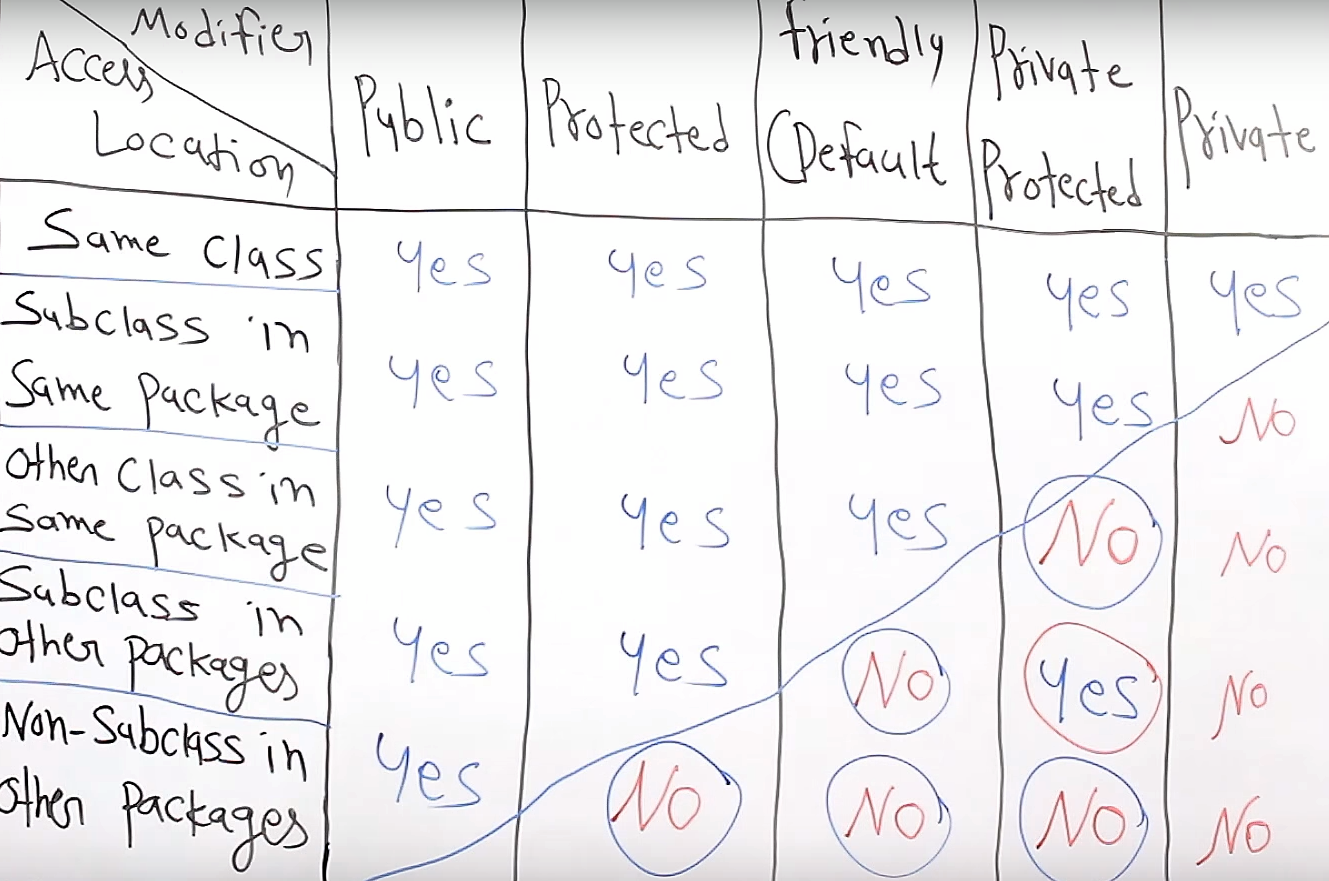 Modifier
Access
Location
Public
Protected
friendly
(Default
Private
Protected
Private
Same Class
Yes Yes Yes Yes Yes
Subclass in
Same package
Yes Yes Yes Yes No
Other Class in
Same package
Yes Yes Yes No No
Subclass in
other packages
Yes Yes No Yes No
Non-Subclass in
other packages
Yes No No No No